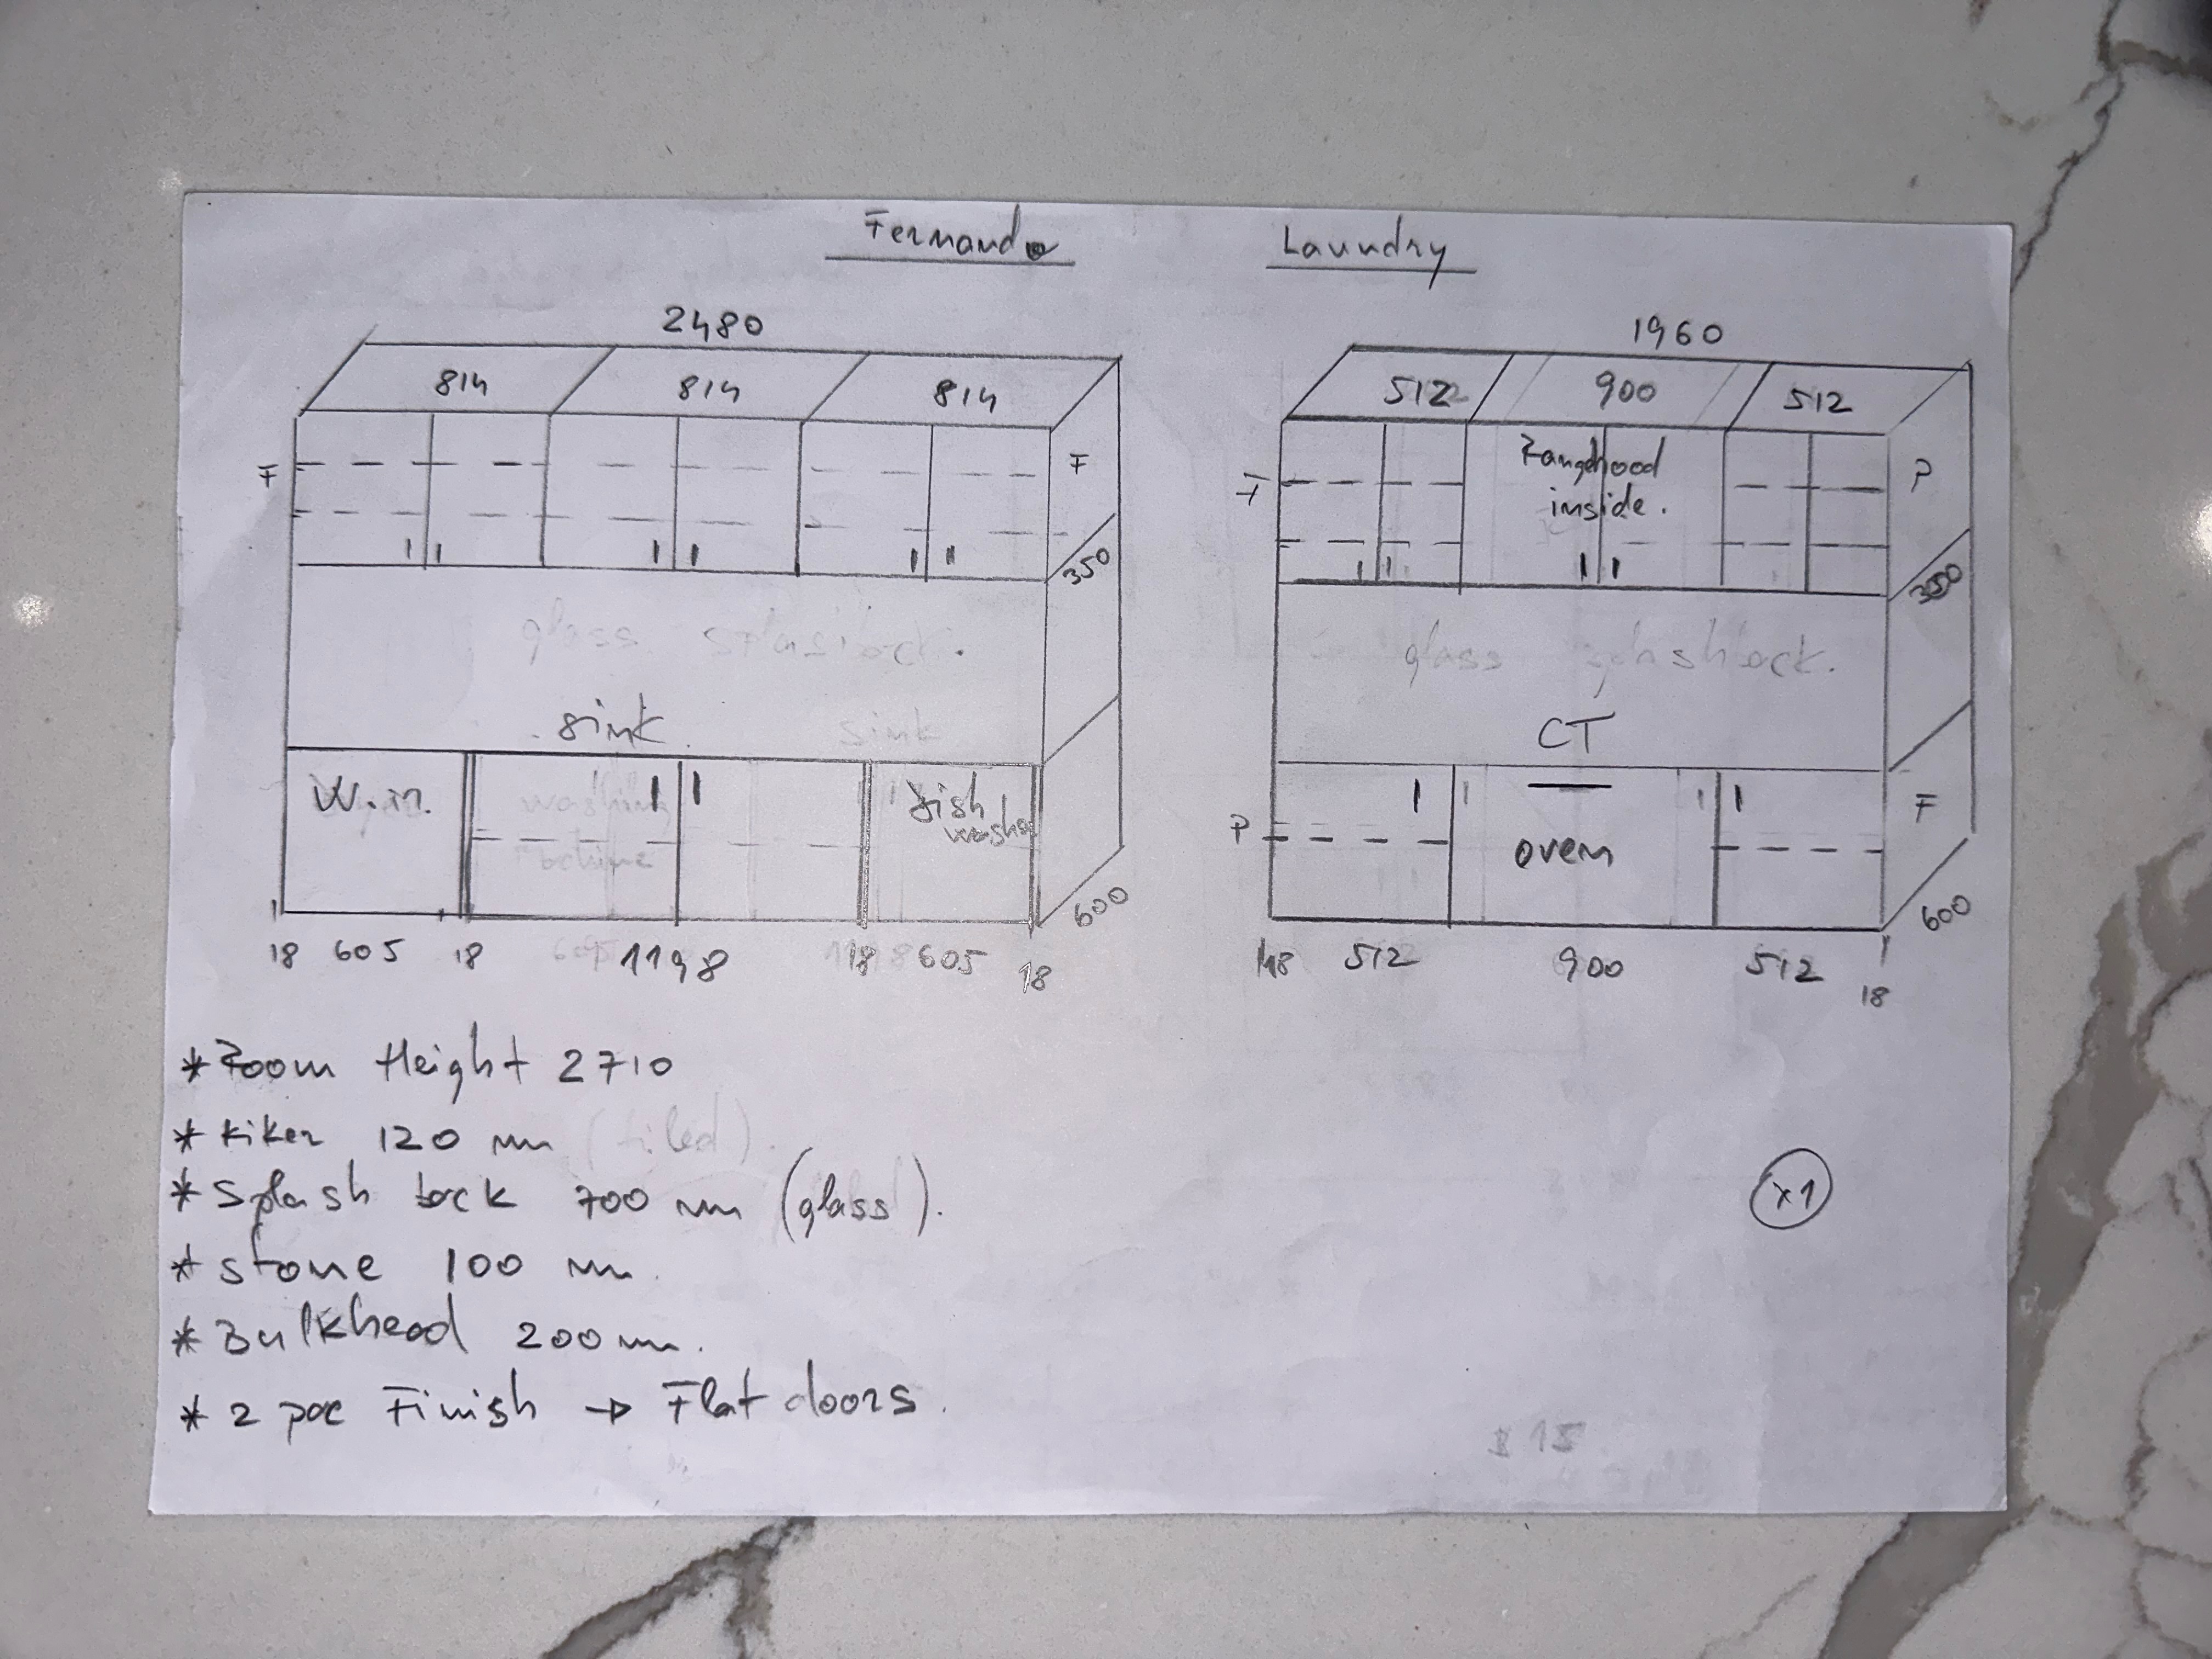 Fernando Laundry
2480
814 814 814
F F
350
glass splashback.
sink
sink
W.m.
washing
machine
Dish
washer
600
18 605 18 1198 18 605 18
1960
512 900 512
Rangehood
inside.
F P
350
glass splashback.
CT
P oven F
600
18 512 900 512 18
* Room Height 2710
* kiker 120 mm (tiled).
* Splash back 700 mm (glass).
* stone 100 mm.
* Bulkhead 200mm.
* 2 pac Finish → Flat doors.
x1
$ 15